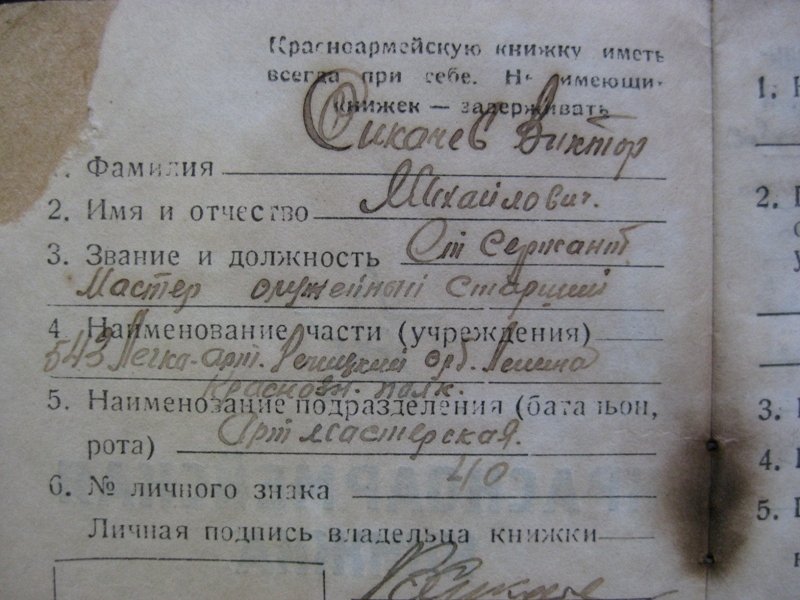 Красноармейскую книжку иметь
всегда при себе. Не имеющи
книжек — задерживать
Сикачев Виктор
1. Фамилия
2. Имя и отчество Михайлович.
3. Звание и должность Ст Сержант
Мастер оружейный старший
4 Наименование части (учреждения)
543 Легко-арт. Речицкий орд. Ленина
Краснозн. полк.
5. Наименование подразделения (батальон,
рота) Арт мастерская.
6. № личного знака 40
Личная подпись владельца книжки
1.
2.
3.
4.
5.